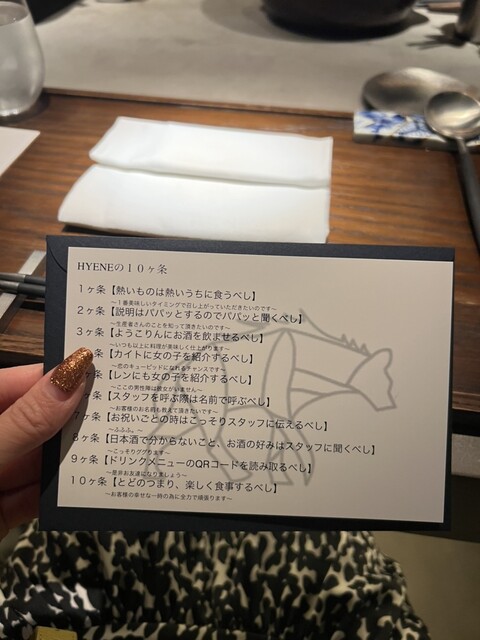 HYENEの10ヶ条
1ヶ条【熱いものは熱いうちに食うべし】
～1番美味しいタイミングで召し上がっていただきたいのです～
2ヶ条【説明はパパッとするのでパパッと聞くべし】
～生産者さんのことを知って頂きたいのです～
3ヶ条【ようこりんにお酒を飲ませるべし】
～いつも以上に料理が美味しく仕上がります～
ヶ条【カイトに女の子を紹介するべし】
～恋のキューピッドになれるチャンスです～
ヶ条【レンにも女の子を紹介するべし】
～ここの男性陣は彼女がいません～
ヶ条【スタッフを呼ぶ際は名前で呼べし】
～お客様のお名前も教えて頂きたいです～
7ヶ条【お祝いごとの時はこっそりスタッフに伝えるべし】
～ふふふ。～
8ヶ条【日本酒で分からないこと、お酒の好みはスタッフに聞くべし】
～こっそりググります～
9ヶ条【ドリンクメニューのQRコードを読み取るべし】
～是非お友達になりましょう～
10ヶ条【とどのつまり、楽しく食事するべし】
～お客様の幸せな一時の為に全力で頑張ります～